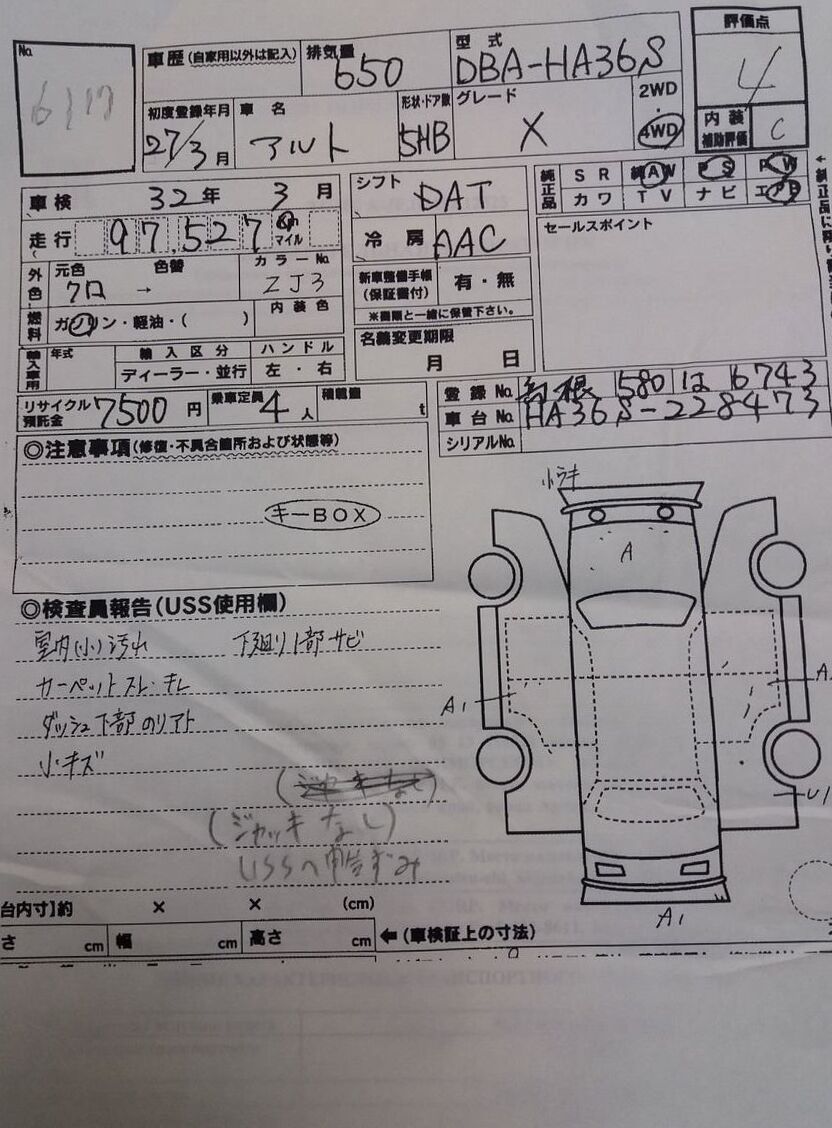 No.
6117
車歴(自家用以外は記入)
排気量 650
型式 DBA-HA36S
評価点 4
初度登録年月 27/3月
車名 アルト
形状・ドア数 5HB
グレード X
2WD・4WD
内装補助評価 C
車検 32年 3月
シフト DAT
純正品 SR AW PS PW
カワ TV ナビ
走行 97,527 km マイル
冷房 AAC
セールスポイント
外色 元色 クロ → 色替
カラーNo. ZJ3
新車整備手帳(保証書付) 有・無
※書類と一緒に保管下さい。
燃料 ガソリン・軽油・( )
内装色
名義変更期限 月 日
輸入車用 年式
輸入区分 ディーラー・並行
ハンドル 左・右
リサイクル預託金 7500円
乗車定員 4人
積載量 t
登録No. 島根 580 は 6743
車台No. HA36S-228473
シリアルNo.
◎注意事項(修復・不具合箇所および状態等)
キーBOX
◎検査員報告(USS使用欄)
室内(小)汚れ 下廻り1部サビ
カーペットスレ・キレ
ダッシュ下部のリアト
小キズ
(ジャッキなし)
(ジャッキなし)
USSへ申告ずみ
小ラキ
A
A1
A
U1
A1
台内寸】約 × × (cm)
さ cm 幅 cm 高さ cm ←(車検証上の寸法)